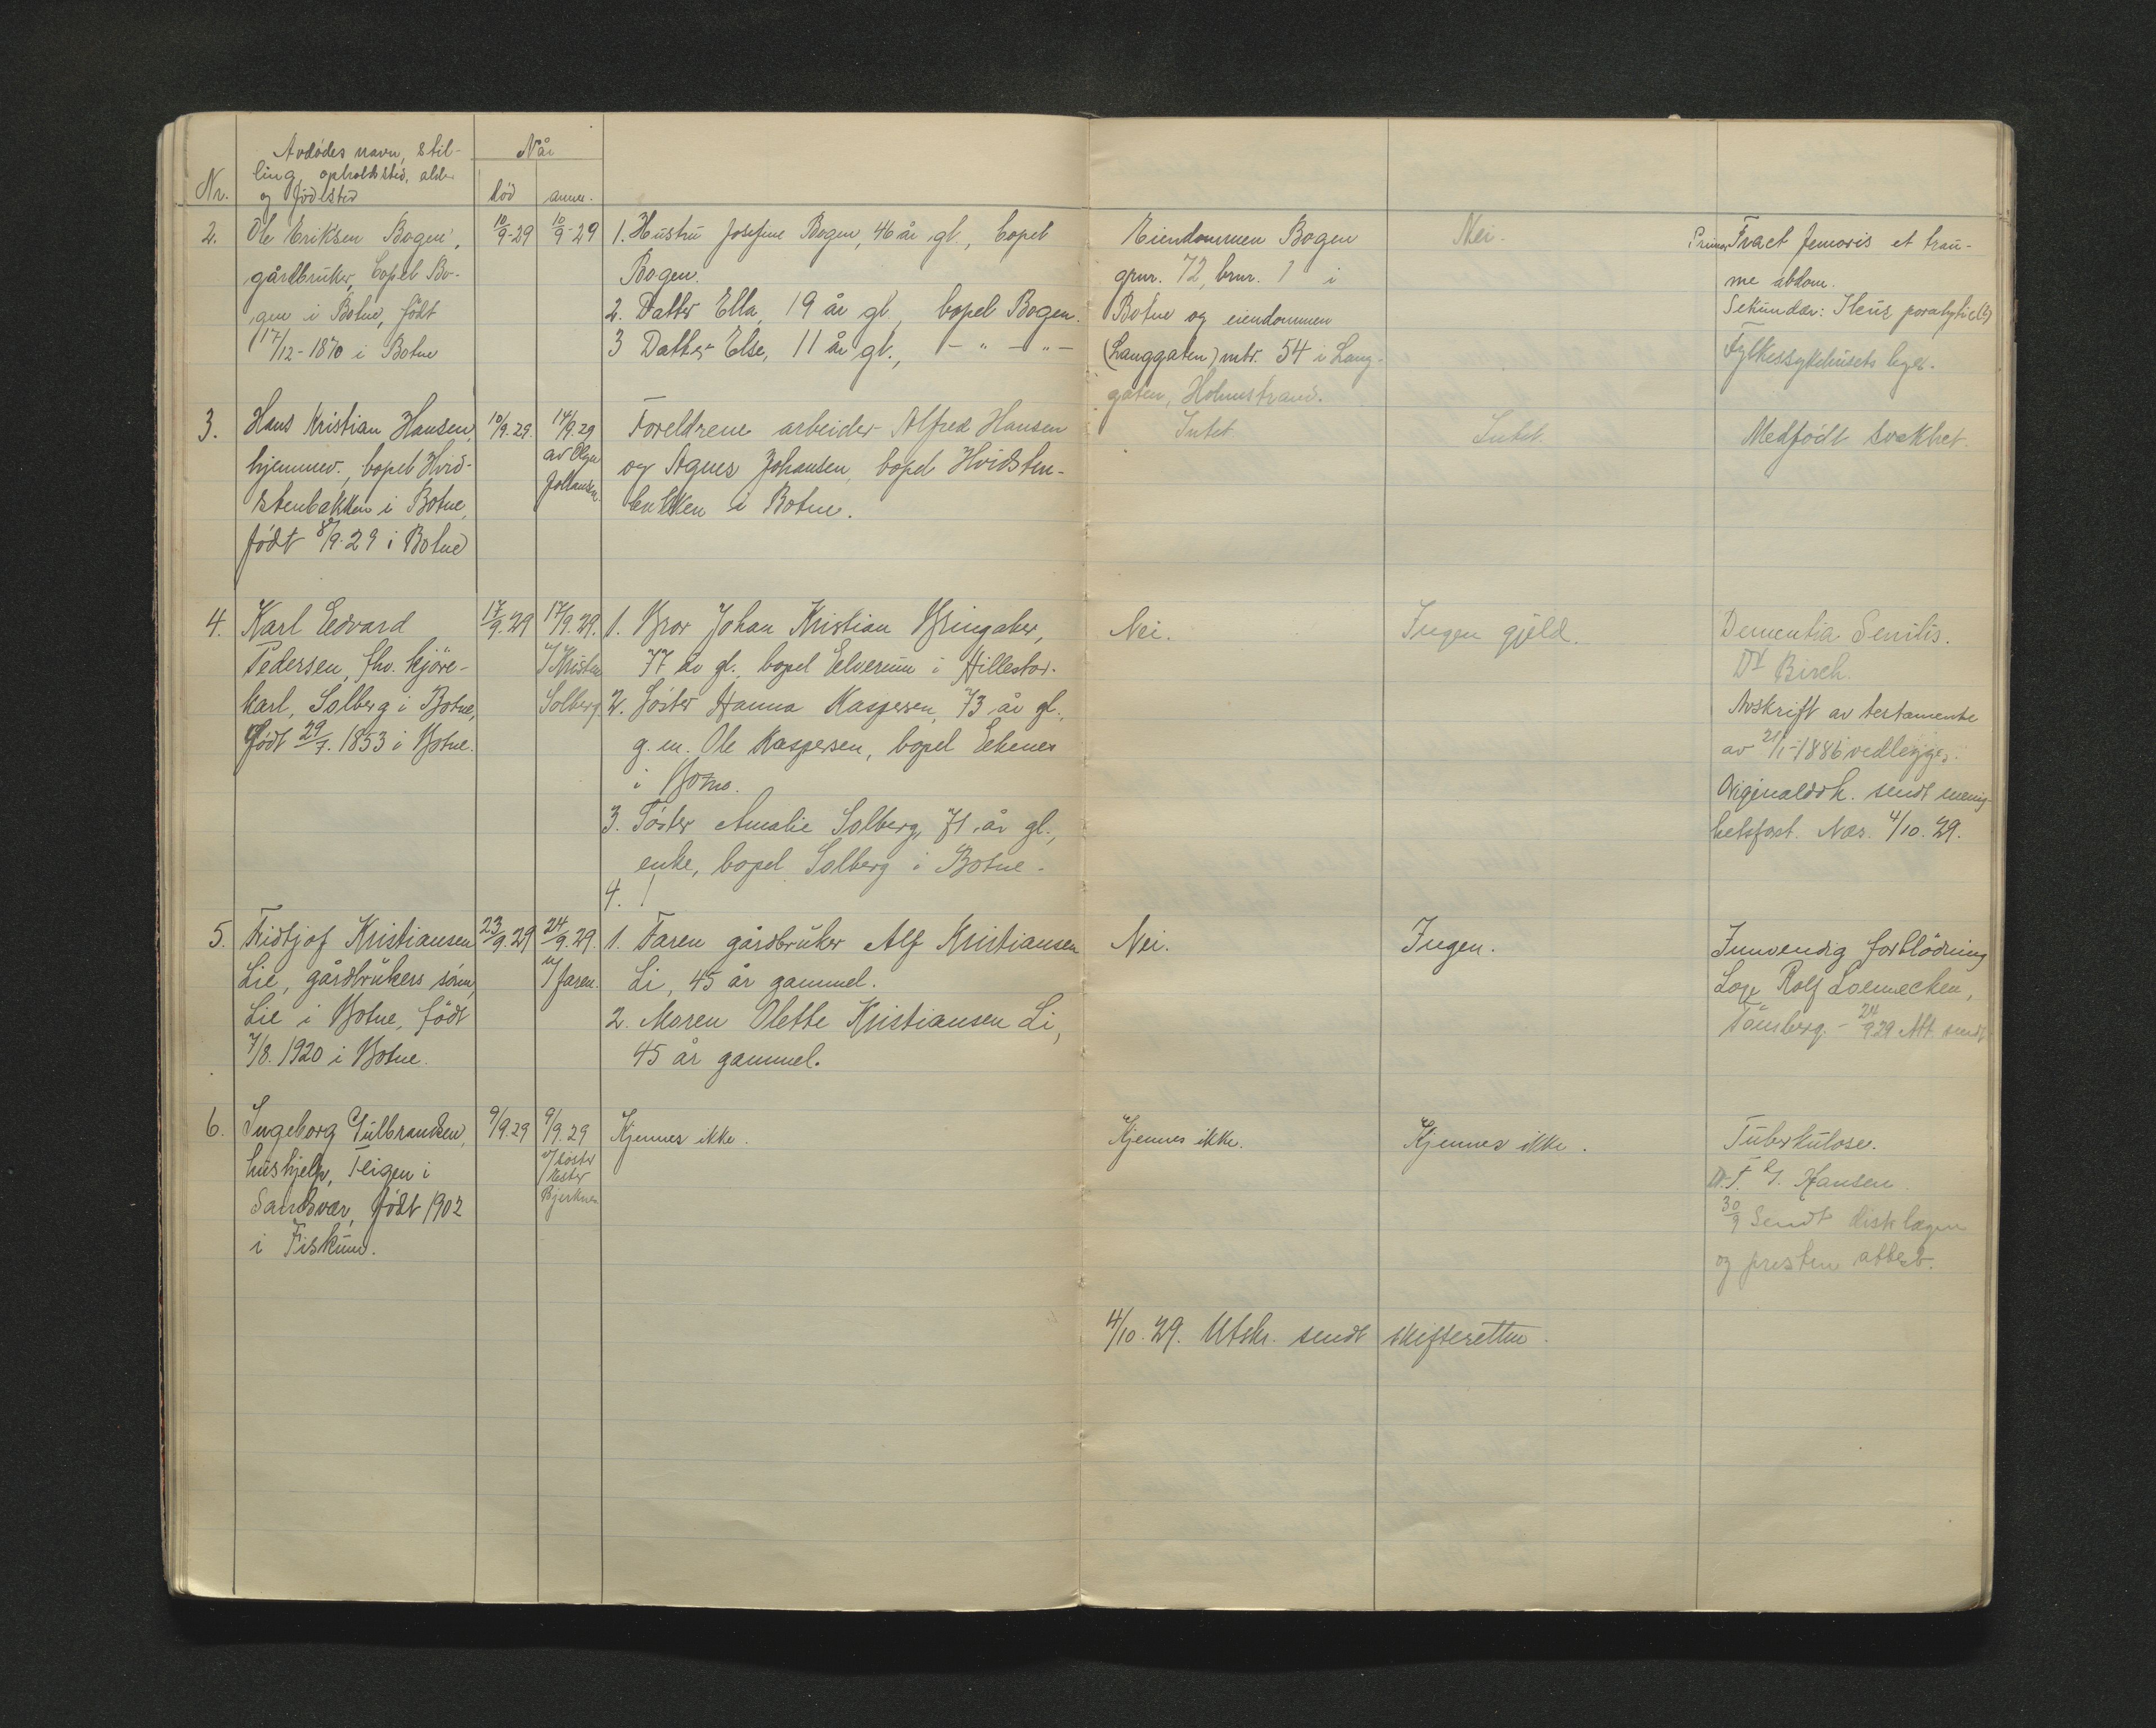 Avdødes navn, stil-
ling, opholdssted, alder
og fødested
Når
Nr.
død
anm.
2.
Ole Eriksen Bogen,
gårdbruker, bopel Bo-
gen i Botne, født
17/12-1870 i Botne
10/9-29
10/9-29
1. Hustru Josefine Bogen, 46 år gl., bopel
Bogen.
2. Datter Ella, 19 år gl., bopel Bogen.
3 Datter Else, 11 år gl., - " - " -
Eiendommen Bogen
gnr. 72, brnr. 1 i
Botne og eiendommen
(Langgaten) mtr. 54 i Lang-
gaten, Holmestrand.
Nei.
Primær Fract femoris et trau-
me abdom.
Sekundær: Ileus paralytic(?)
Fylkessykehusets leger.
3.
Hans Kristian Hansen,
hjemmev. bopel Hvid-
stenbakken i Botne,
født 8/9-29 i Botne
10/9.29.
14/9.29
av Olga
Johansen.
Foreldrene arbeider Alfred Hansen
og Agnes Johansen, bopel Hvidsten-
bakken i Botne.
Intet
Intet.
Medfødt svakhet.
4.
Karl Edvard
Pedersen, fhv. kjøre-
karl, Solberg i Botne,
født 29/7. 1853 i Botne.
17/9.29
17/9.29.
v/ Kristen
Solberg
1. Bror Johan Kristian Bringaker,
77 år gl., bopel Elverum i Hillestad.
2. Søster Hanna Kaspersen, 73 år gl.,
g.m. Ole Kaspersen, bopel Eknes
i Botne.
3. Søster Amalie Solberg, 71 år gl.,
enke, bopel Solberg i Botne.
4. !
Nei.
Ingen gjeld.
Dementia Senilis.
Dr Birch.
Avskrift av testamente
av 21/1-1886 vedlegges.
Originaldok. sendt menig-
hetsfost. Næs. 4/10.29.
5.
Fridtjof Kristiansen
Lie, gårdbrukers sønn,
Lie i Botne, født
7/8. 1920 i Botne.
23/9.29
24/9.29.
v/ faren.
1. Faren gårdbruker Alf Kristiansen
Li, 45 år gammel.
2. Moren Olette Kristiansen Li,
45 år gammel.
Nei.
Ingen.
Innvendig forblødning
Læge Rolf Loennecken,
Tønsberg. - 24/9 29 Att. sendt
6.
Ingeborg Gulbrandsen,
hushjelp, Teigen i
Sandsvær, født 1902
i Fiskum.
9/9.29
9/9.29
v/ søster
Ester
Bjerknes
Kjennes ikke.
Kjennes ikke.
Kjennes ikke.
Tuberkulose.
Hansen.
30/9 Sendt distr.lægen
og presten attest.
4/10.29. Utskr. sendt skifteretten.